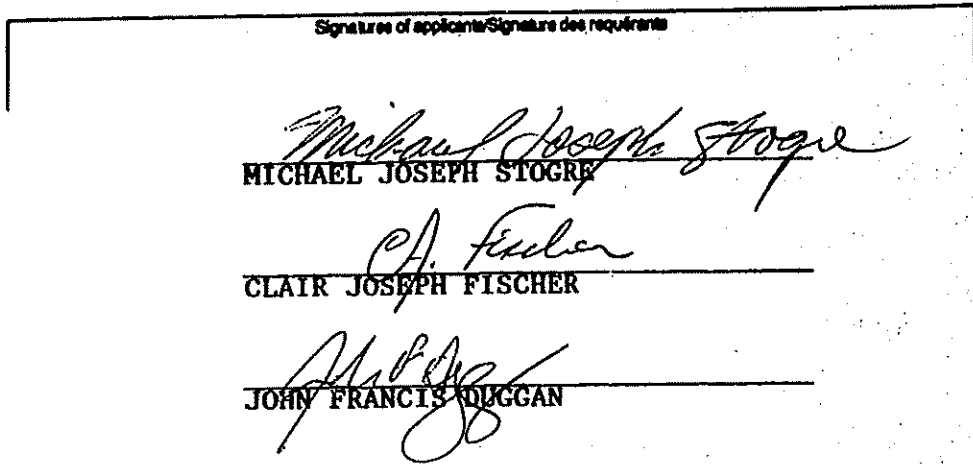 Signatures of applicants/Signature des requérants
Michael Joseph Stogre
MICHAEL JOSEPH STOGRE
CJ. Fischer
CLAIR JOSEPH FISCHER
JOHN FRANCIS DUGGAN